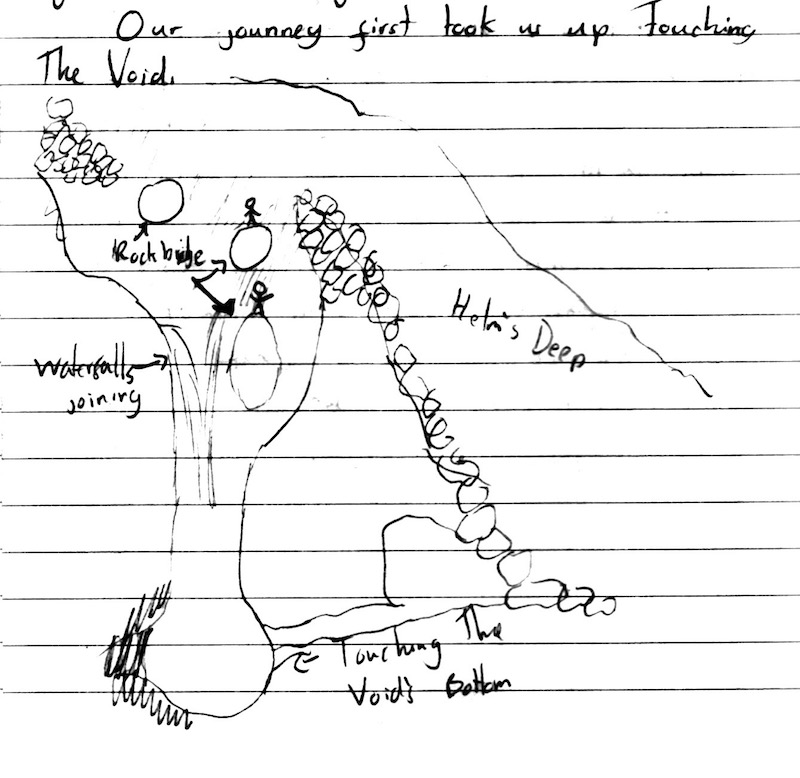 Our journey first took us up Touching
The Void.
Rock bridge
Helm's Deep
Waterfalls
joining
Touching The
Void's Bottom